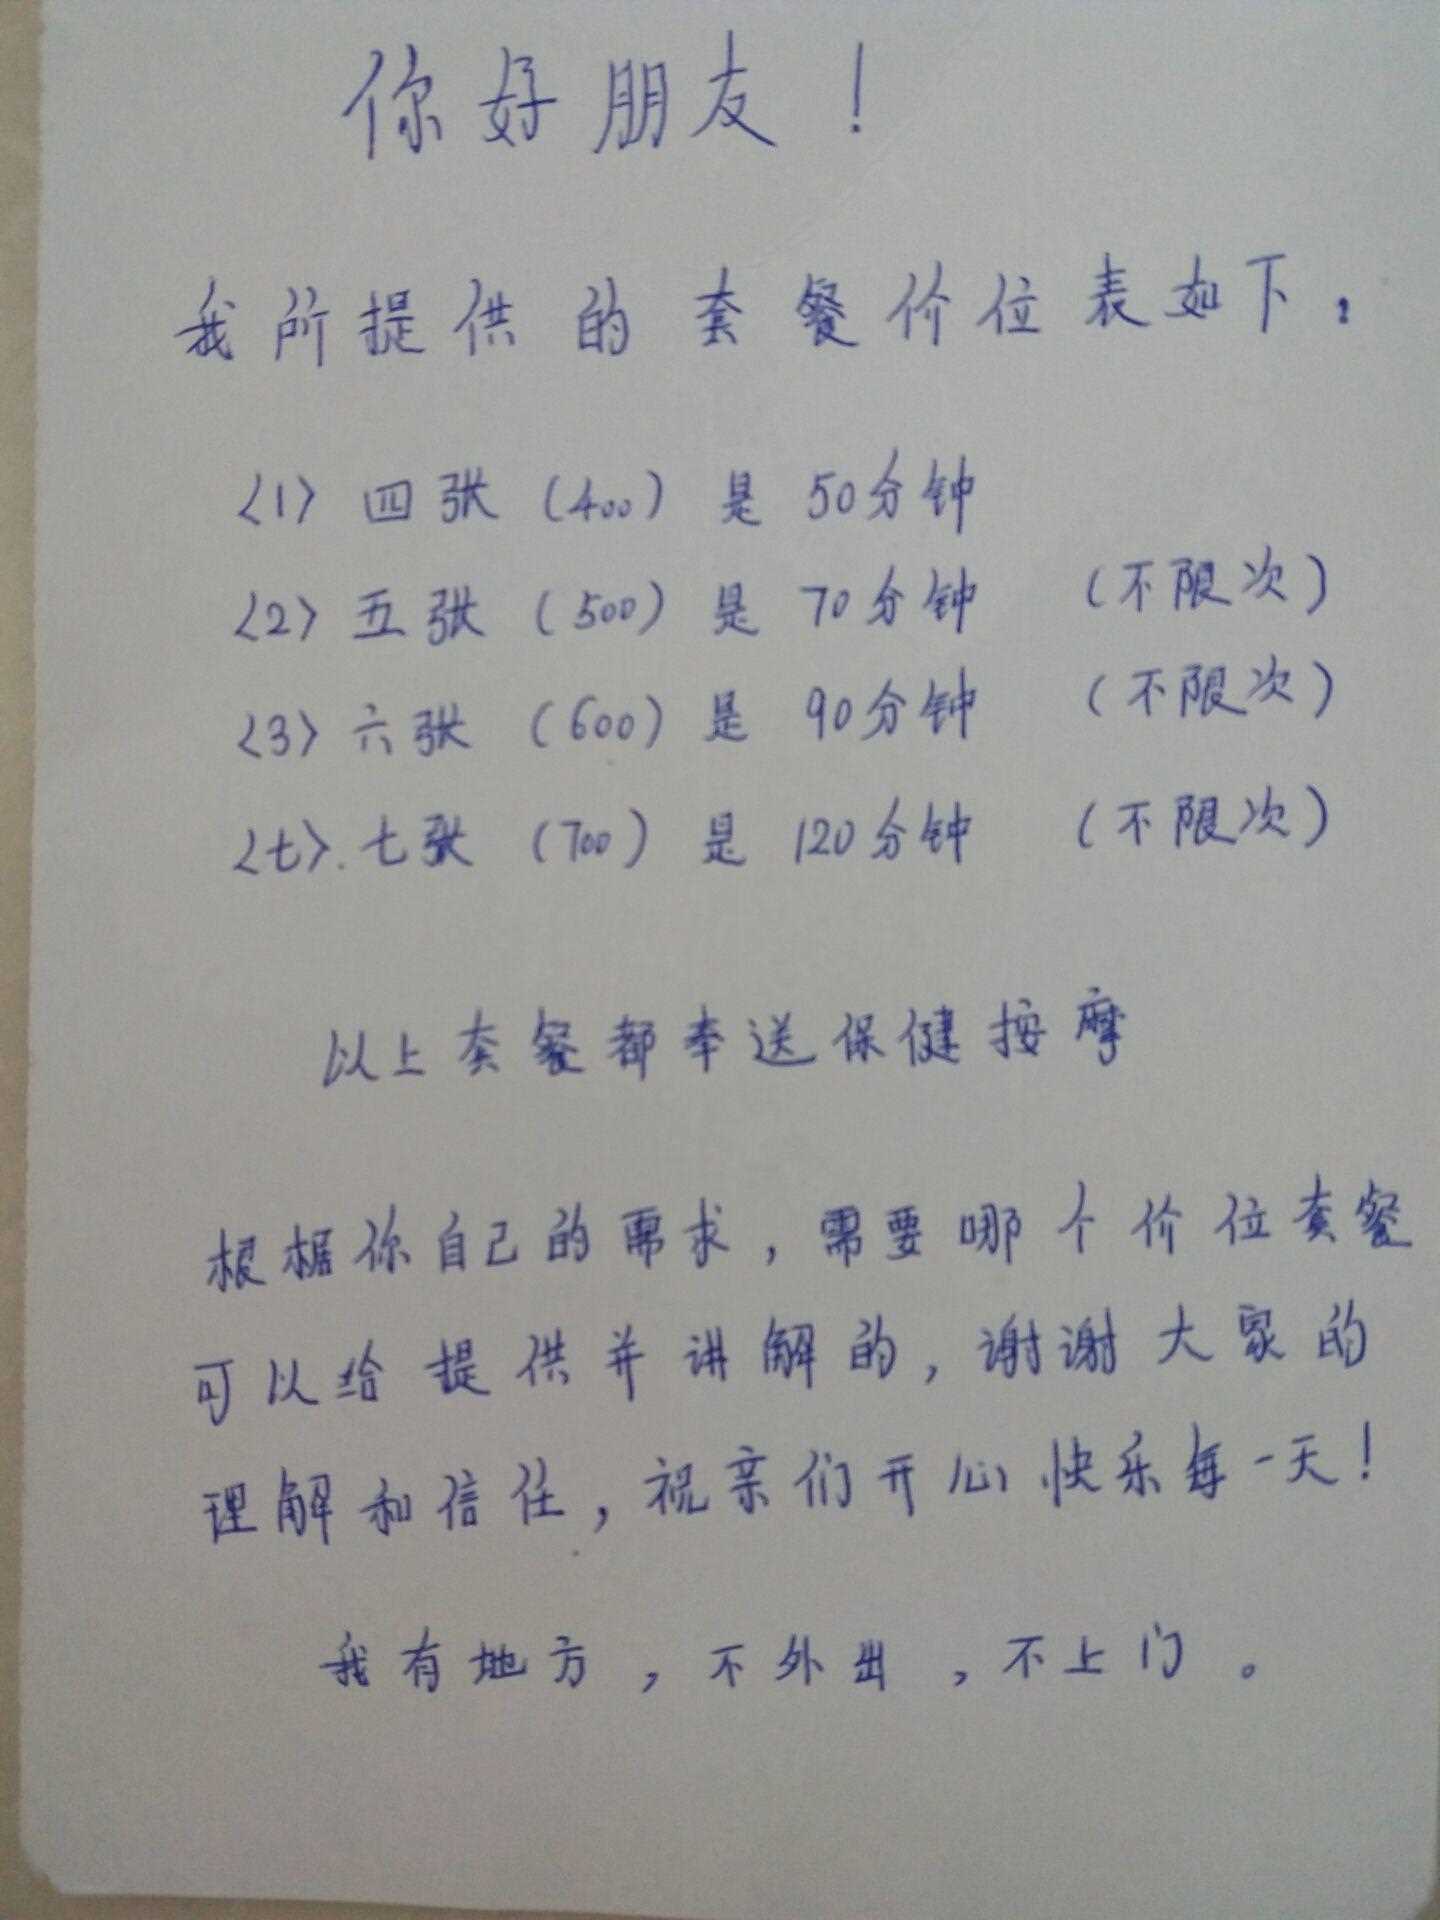 你好朋友！
我所提供的套餐价位表如下：
<1> 四张（400）是 50分钟
<2> 五张（500）是 70分钟 （不限次）
<3> 六张（600）是 90分钟 （不限次）
<七>. 七张（700）是 120分钟 （不限次）
以上套餐都奉送保健按摩
根椐你自己的需求，需要哪个价位套餐
可以给提供并讲解的，谢谢大家的
理解和信任，祝亲们开心快乐每一天！
我有地方，不外出，不上门。